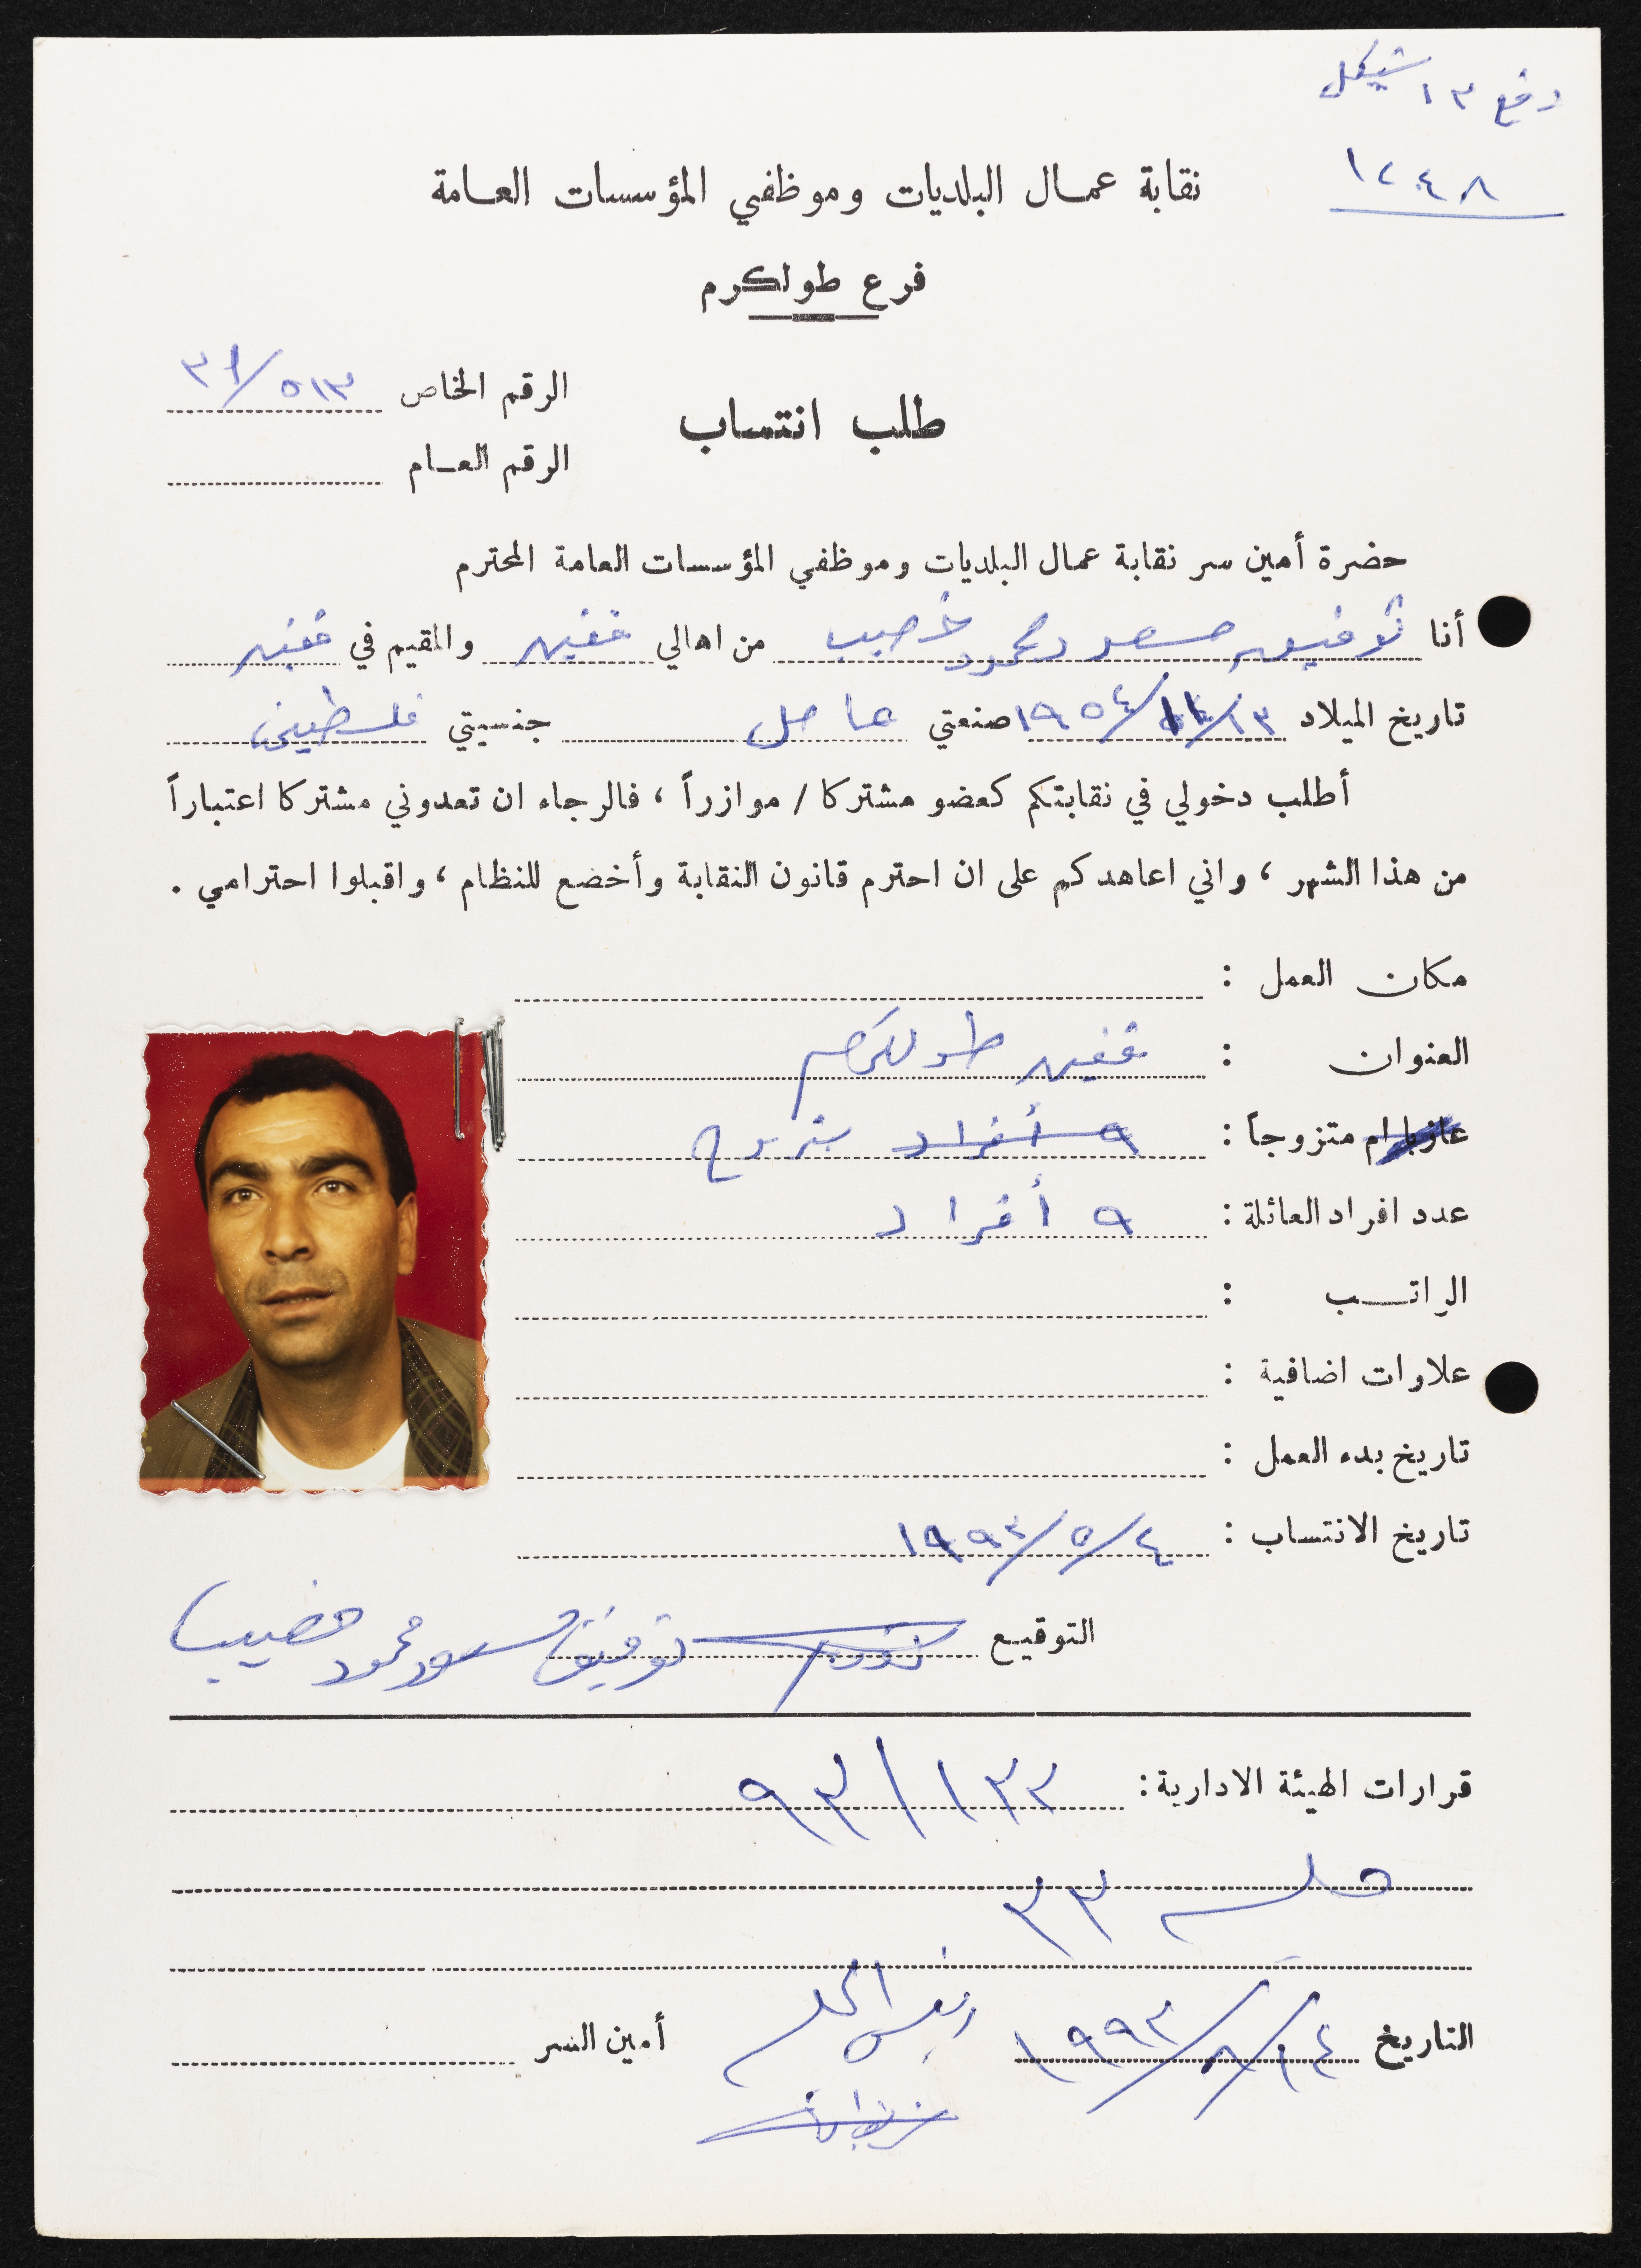 دفع ١٣ شيكل
١٢٤٨
نقابة عمال البلديات وموظفي المؤسسات العامة
فرع طولكرم
الرقم الخاص ٥١٣/٣١
طلب انتساب
الرقم العام
حضرة أمين سر نقابة عمال البلديات وموظفي المؤسسات العامة المحترم
أنا توفيق سعود محمود خصيب من اهالي قفين والمقيم في قفين
تاريخ الميلاد ١٩٥٤ صنعتي عامل جنسيتي فلسطيني
أطلب دخولي في نقابتكم كعضو مشتركا / موازراً ، فالرجاء ان تعدوني مشتركا اعتباراً
من هذا الشهر ، واني اعاهدكم على ان احترم قانون النقابة وأخضع للنظام ، واقبلوا احترامي .
مكان العمل :
العنوان : قفين طولكرم
عازبا ام متزوجاً : ٩ أفراد متزوج
عدد افراد العائلة : ٩ أفراد
الراتب :
علاوات اضافية :
تاريخ بدء العمل :
تاريخ الانتساب : ٤/٥/١٩٩٣
التوقيع توفيق سعود محمود خصيب
قرارات الهيئة الادارية : ١٣٢/٩٣
جلسة ٣٣
التاريخ ١٤/٨/١٩٩٣ رئيس الجلسة أمين السر